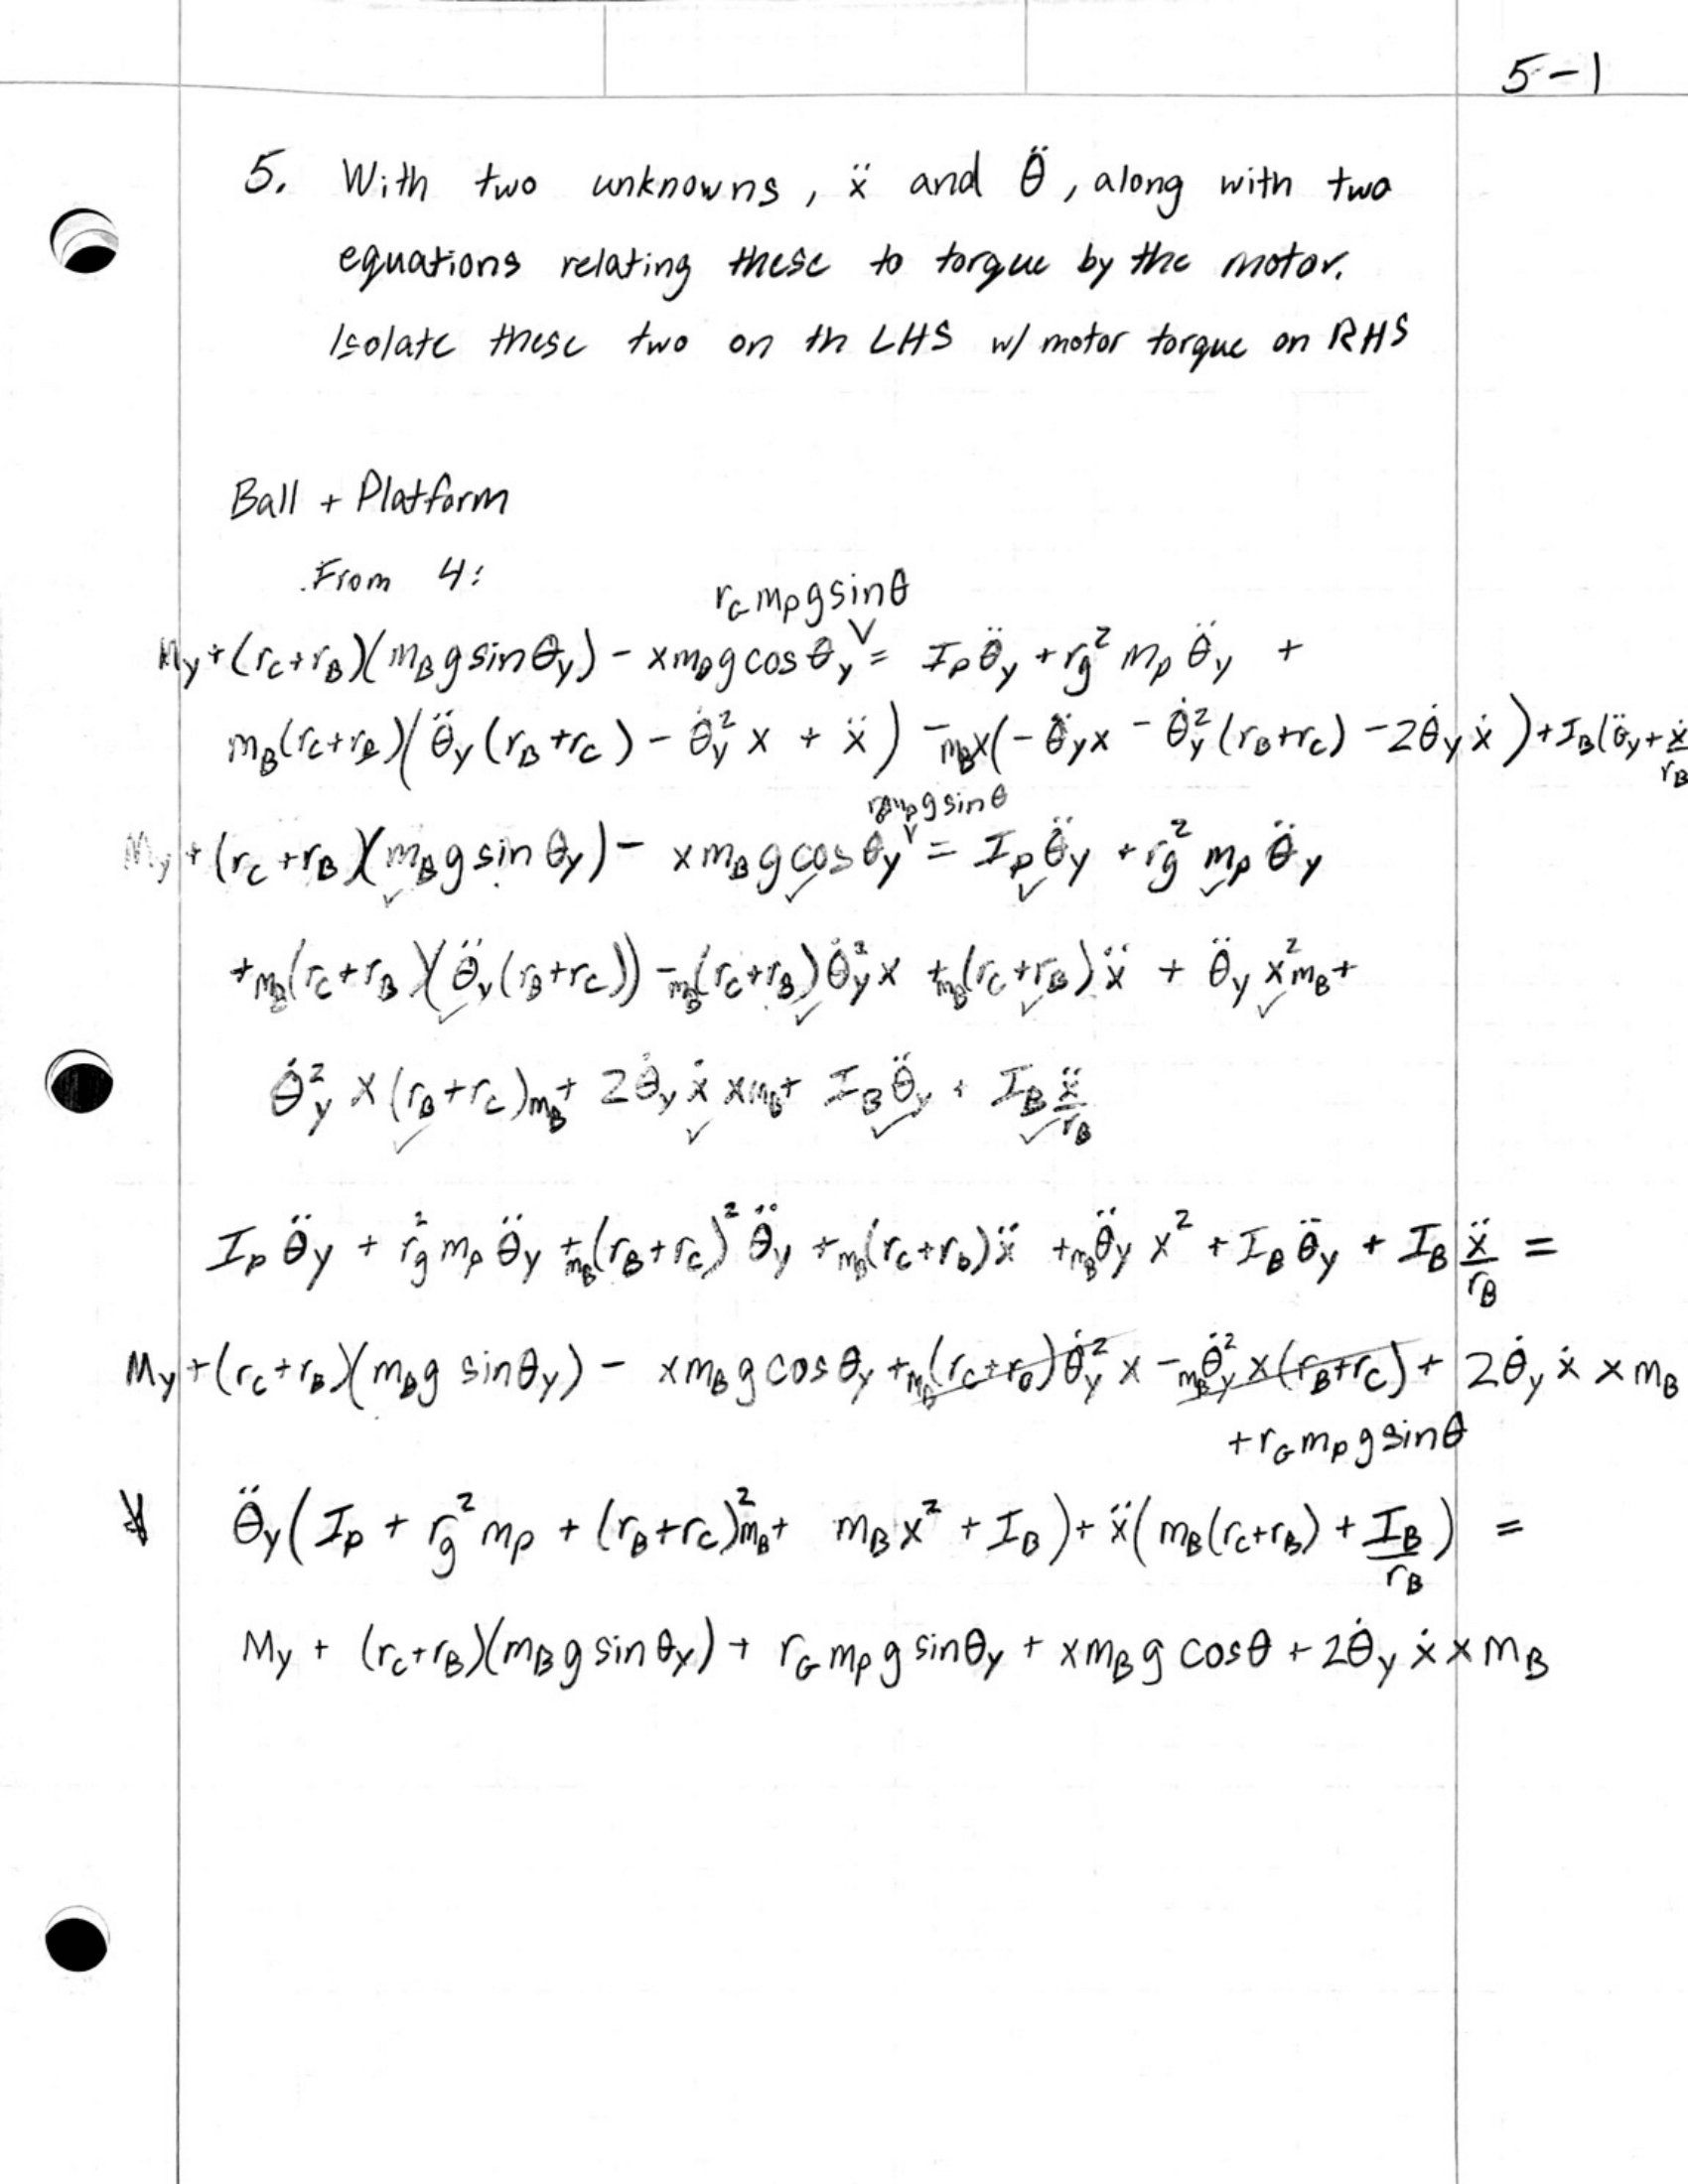 5-1
5. With two unknowns, ẍ and θ̈, along with two
equations relating these to torque by the motor.
Isolate these two on th LHS w/ motor torque on RHS
Ball + Platform
From 4:
r_G m_p g sinθ
M_y + (r_c + r_B)(m_B g sin θ_y) - x m_B g cos θ_y = I_p θ̈_y + r_g² m_p θ̈_y +
m_B(r_c + r_B)(θ̈_y (r_B + r_c) - θ̇_y² x + ẍ) - m_B x(-θ̈_y x - θ̇_y² (r_B + r_c) - 2θ̇_y ẋ) + I_B(θ̈_y + ẍ/r_B
r_G m_p g sin θ
M_y + (r_c + r_B)(m_B g sin θ_y) - x m_B g cos θ_y = I_p θ̈_y + r_g² m_p θ̈_y
+ m_B(r_c + r_B)(θ̈_y (r_B + r_c)) - m_B(r_c + r_B) θ̇_y² x + m_B(r_c + r_B) ẍ + θ̈_y x² m_B +
θ̇_y² x (r_B + r_c) m_B + 2θ̇_y ẋ x m_B + I_B θ̈_y + I_B ẍ/r_B
I_p θ̈_y + r_g² m_p θ̈_y + m_B(r_B + r_c)² θ̈_y + m_B(r_c + r_b) ẍ + m_B θ̈_y x² + I_B θ̈_y + I_B ẍ/r_B =
M_y + (r_c + r_B)(m_B g sin θ_y) - x m_B g cos θ_y + m_B(r_c + r_B) θ̇_y² x - m_B θ̇_y² x (r_B + r_c) + 2θ̇_y ẋ x m_B
+ r_G m_p g sin θ
θ̈_y (I_p + r_g² m_p + (r_B + r_c)² m_B + m_B x² + I_B) + ẍ(m_B(r_c + r_B) + I_B/r_B) =
M_y + (r_c + r_B)(m_B g sin θ_y) + r_G m_p g sin θ_y + x m_B g cos θ + 2θ̇_y ẋ x m_B